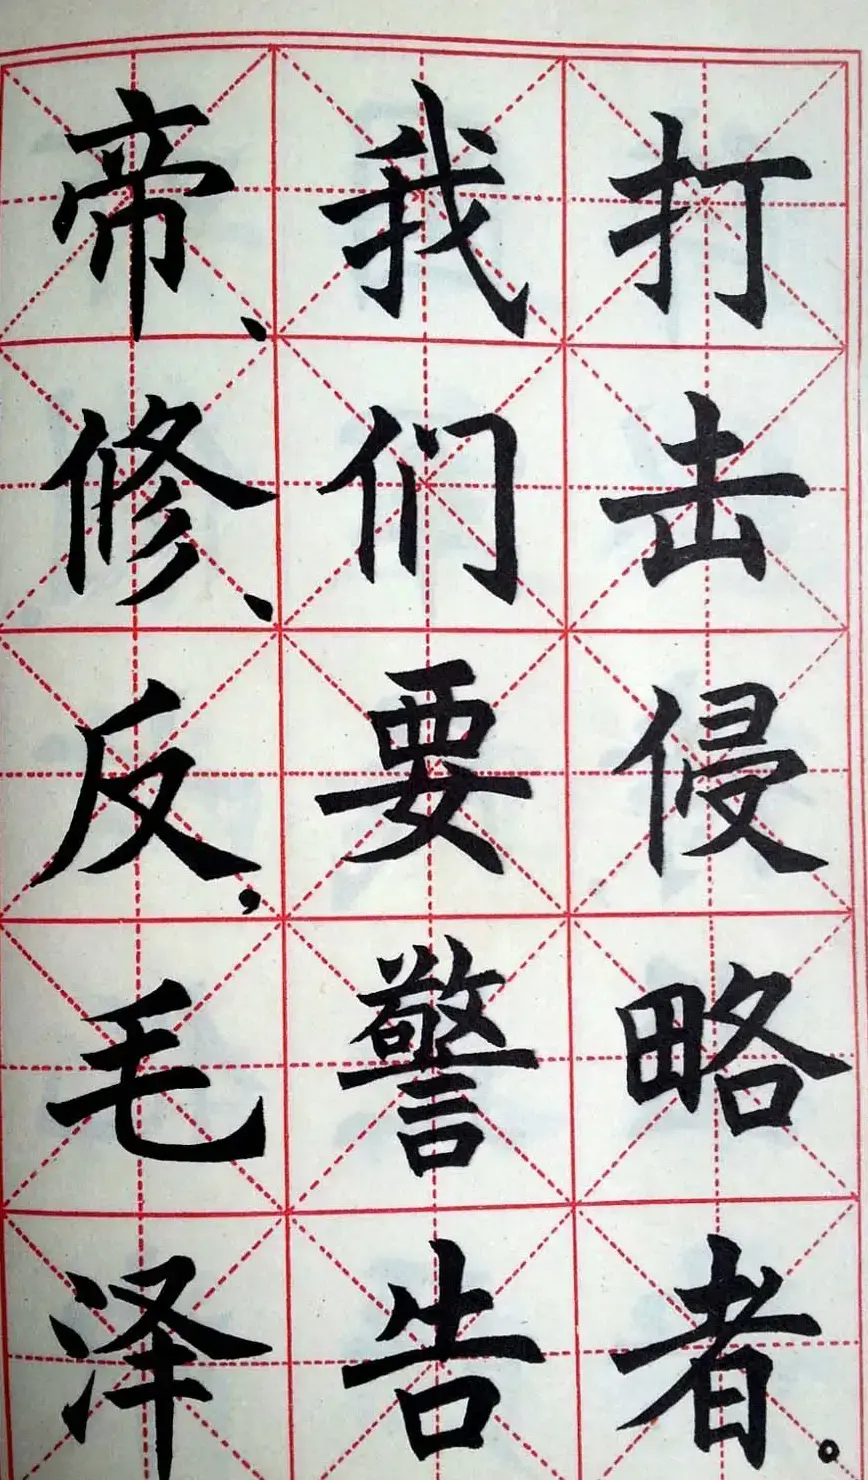 打击侵略者。
我们要警告
帝、修、反，毛泽